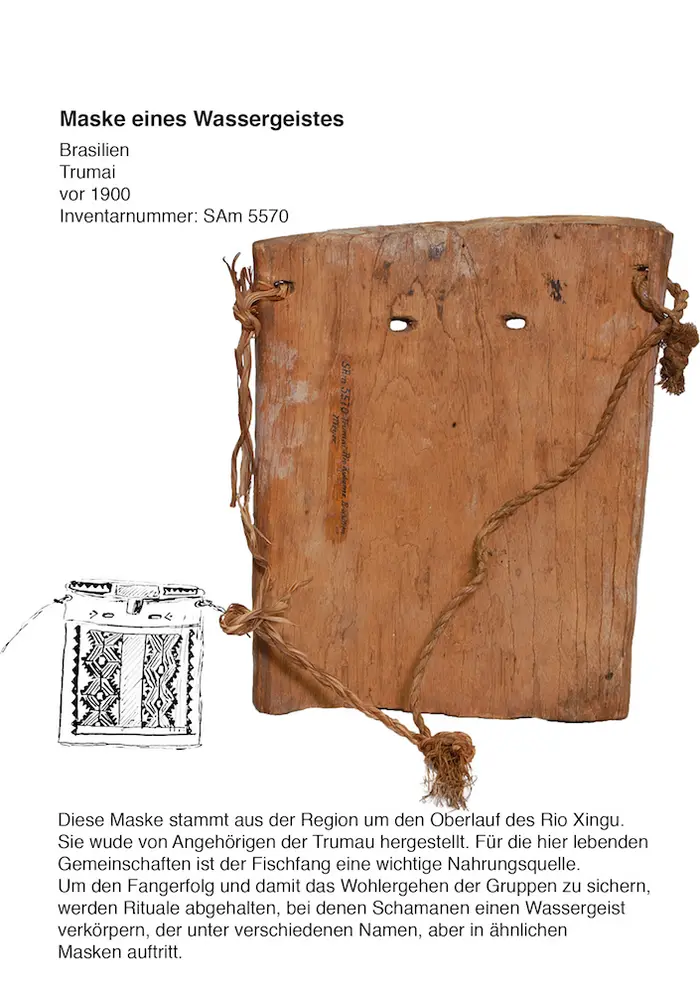 Maske eines Wassergeistes
Brasilien
Trumai
vor 1900
Inventarnummer: SAm 5570
SAm 5570 Trumai
Meyer
Diese Maske stammt aus der Region um den Oberlauf des Rio Xingu.
Sie wude von Angehörigen der Trumau hergestellt. Für die hier lebenden
Gemeinschaften ist der Fischfang eine wichtige Nahrungsquelle.
Um den Fangerfolg und damit das Wohlergehen der Gruppen zu sichern,
werden Rituale abgehalten, bei denen Schamanen einen Wassergeist
verkörpern, der unter verschiedenen Namen, aber in ähnlichen
Masken auftritt.